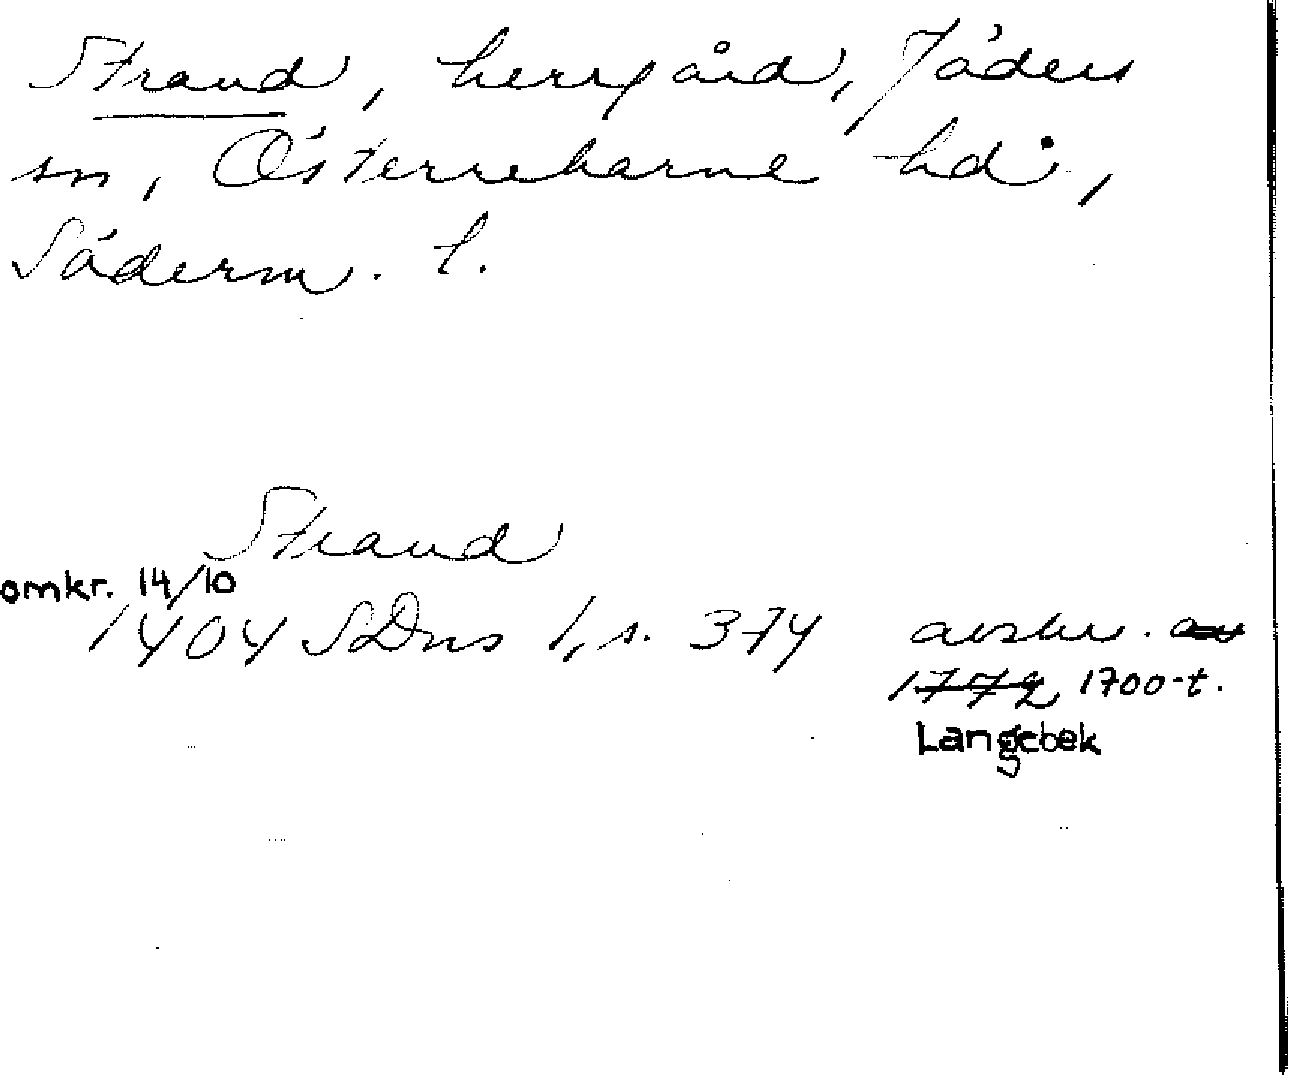 Strand, herrgård, Jäders
sn, Österrekarne hd,
Söderm. l.
Strand
omkr. 14/10
1404 SDns 1, s. 374 avskr. av
1772 1700-t.
Langebek